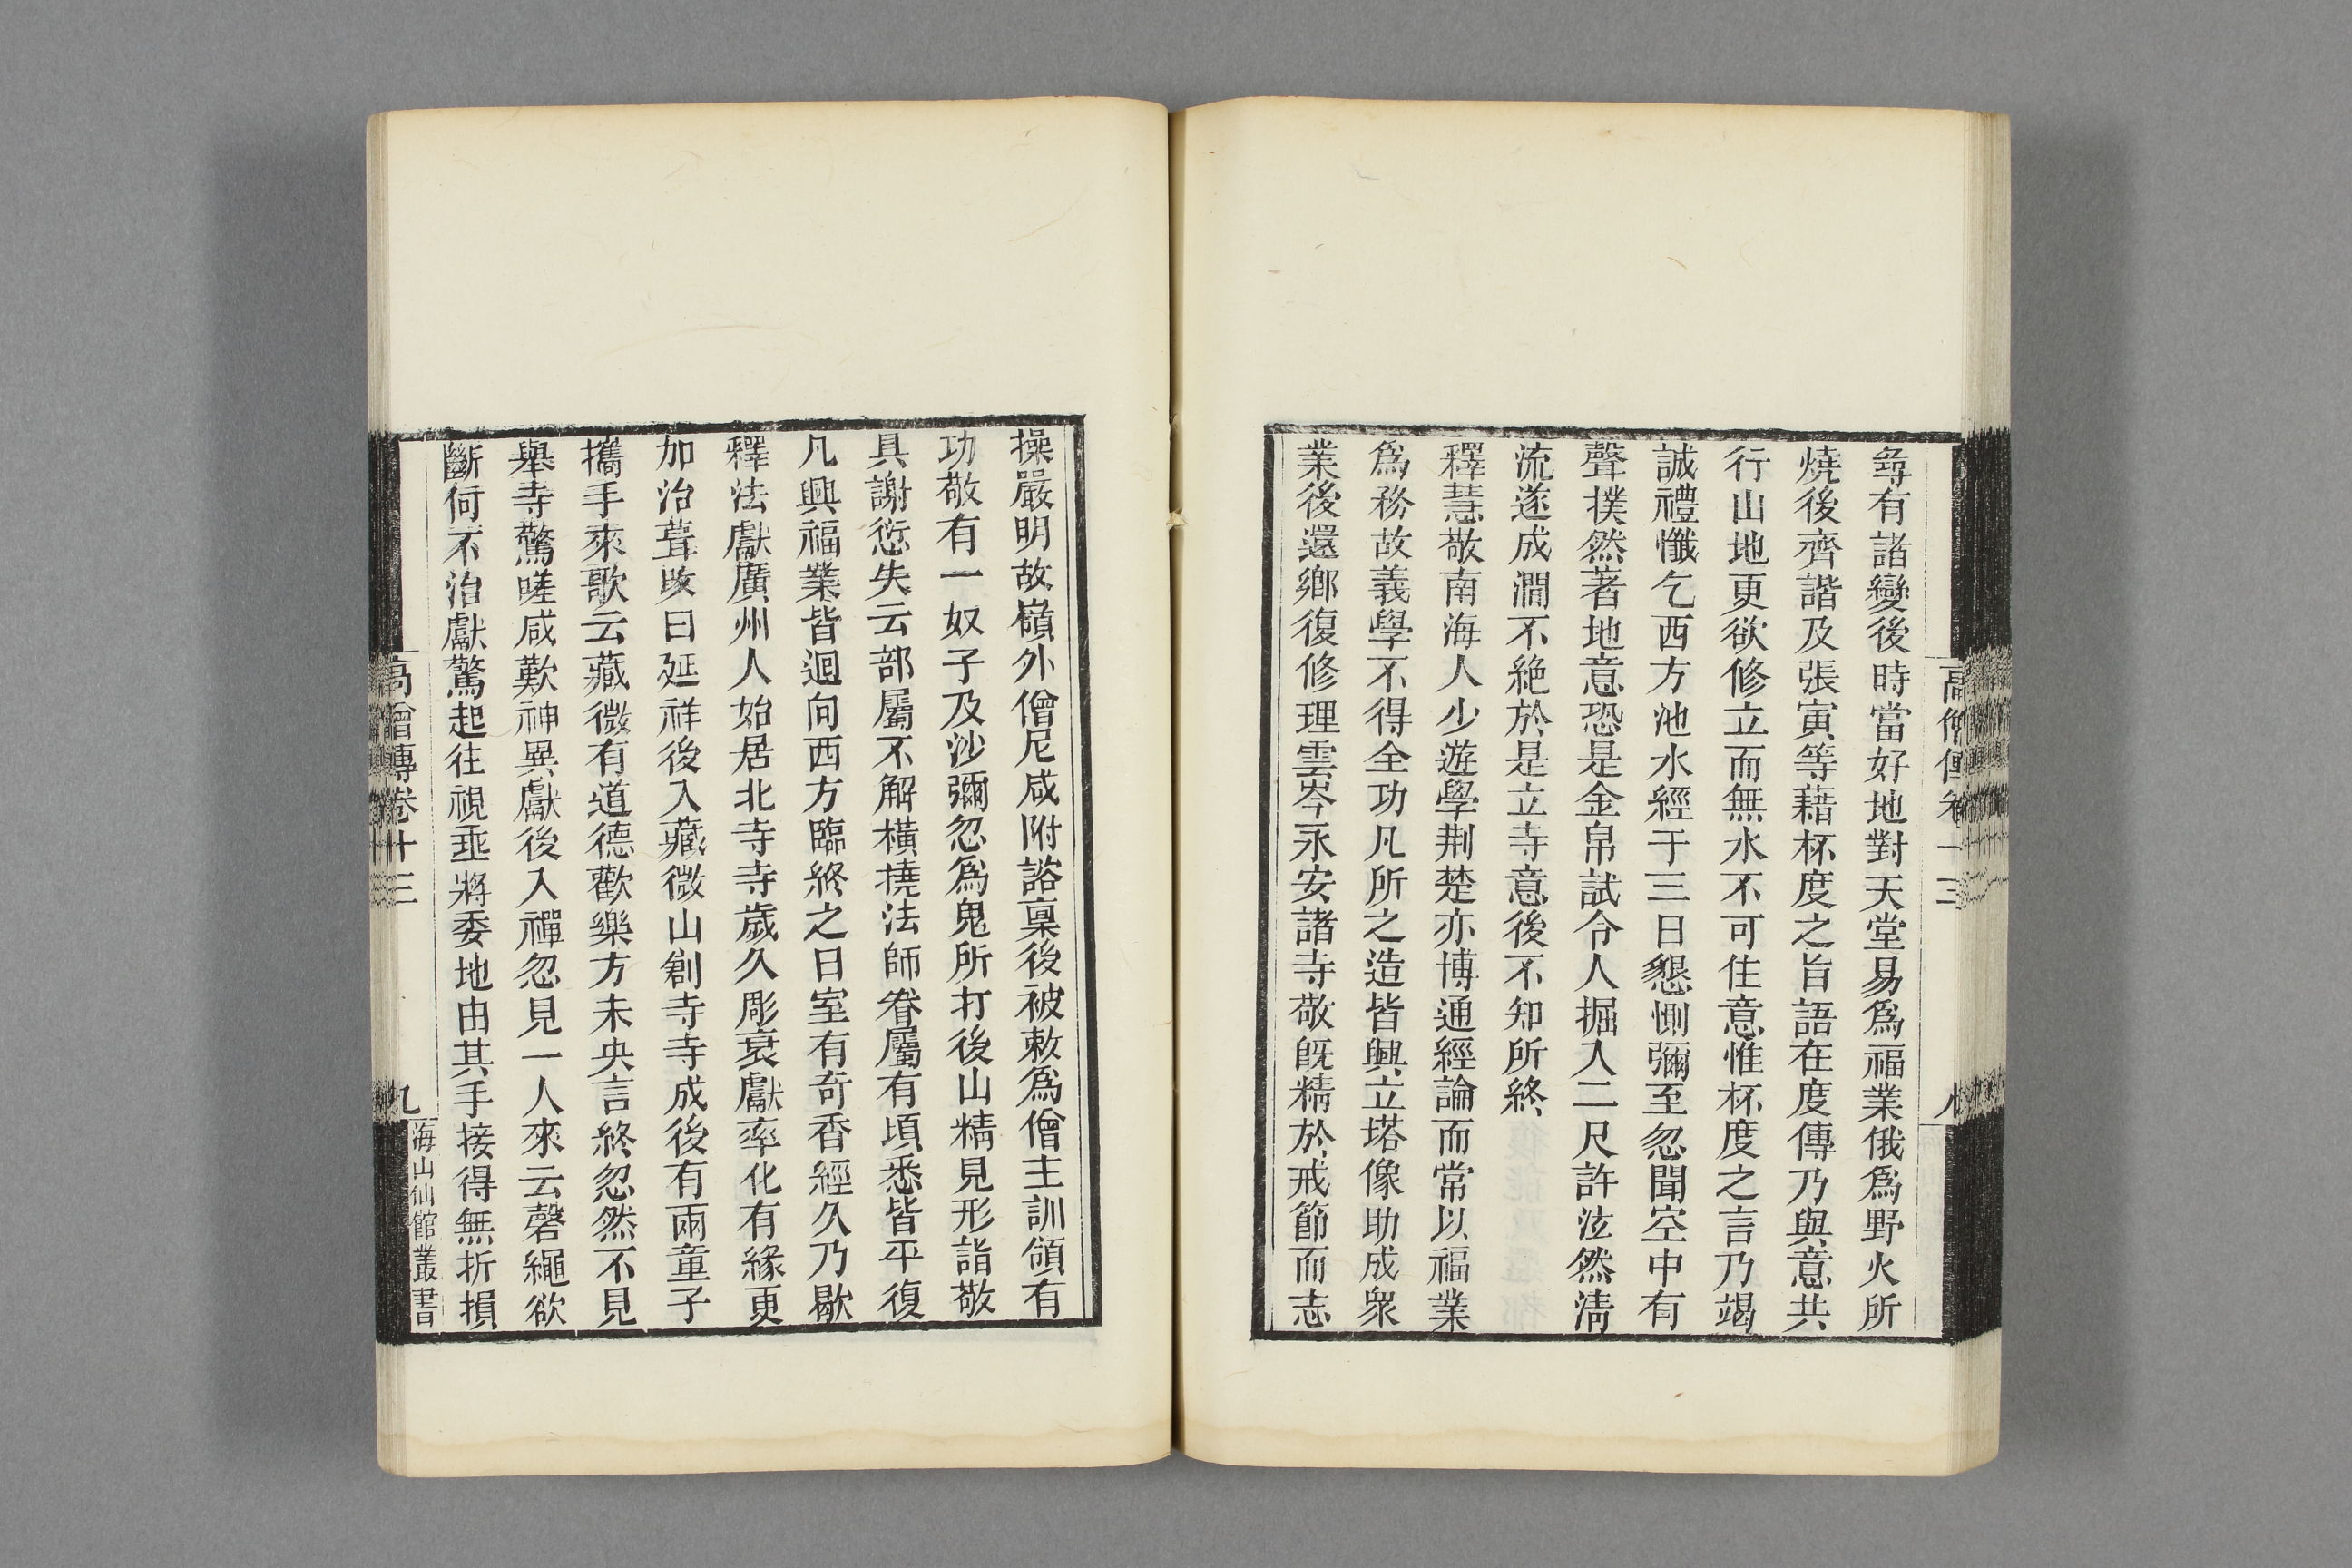 高僧傳卷十三
八
㝷有諸變後時當好地對天堂易爲福業俄爲野火所
燒後齊諧及張寅等藉杯度之旨語在度傳乃與意共
行山地更欲修立而無水不可住意惟杯度之言乃竭
誠禮懺乞西方池水經于三日懇惻彌至忽聞空中有
聲撲然著地意恐是金帛試令人掘入二尺許泫然清
流遂成澗不絶於是立寺意後不知所終
釋慧敬南海人少遊學荆楚亦博通經論而常以福業
爲務故義學不得全功凡所之造皆興立塔像助成衆
業後還鄉復修理雲岑永安諸寺敬既精於戒節而志
操嚴明故嶺外僧尼咸附諮禀後被敕爲僧主訓領有
功敬有一奴子及沙彌忽爲鬼所打後山精見形詣敬
具謝愆失云部屬不解橫撓法師眷屬有頃悉皆平復
凡興福業皆迴向西方臨終之日室有奇香經久乃歇
釋法獻廣州人始居北寺寺歲久彫衰獻率化有緣更
加治葺改曰延祥後入藏微山創寺寺成後有兩童子
攜手來歌云藏微有道德歡樂方未央言終忽然不見
舉寺驚嗟咸歎神異獻後入禪忽見一人來云磬繩欲
斷何不治獻驚起往視垂將委地由其手接得無折損
高僧傳卷十三
九
海山仙館叢書